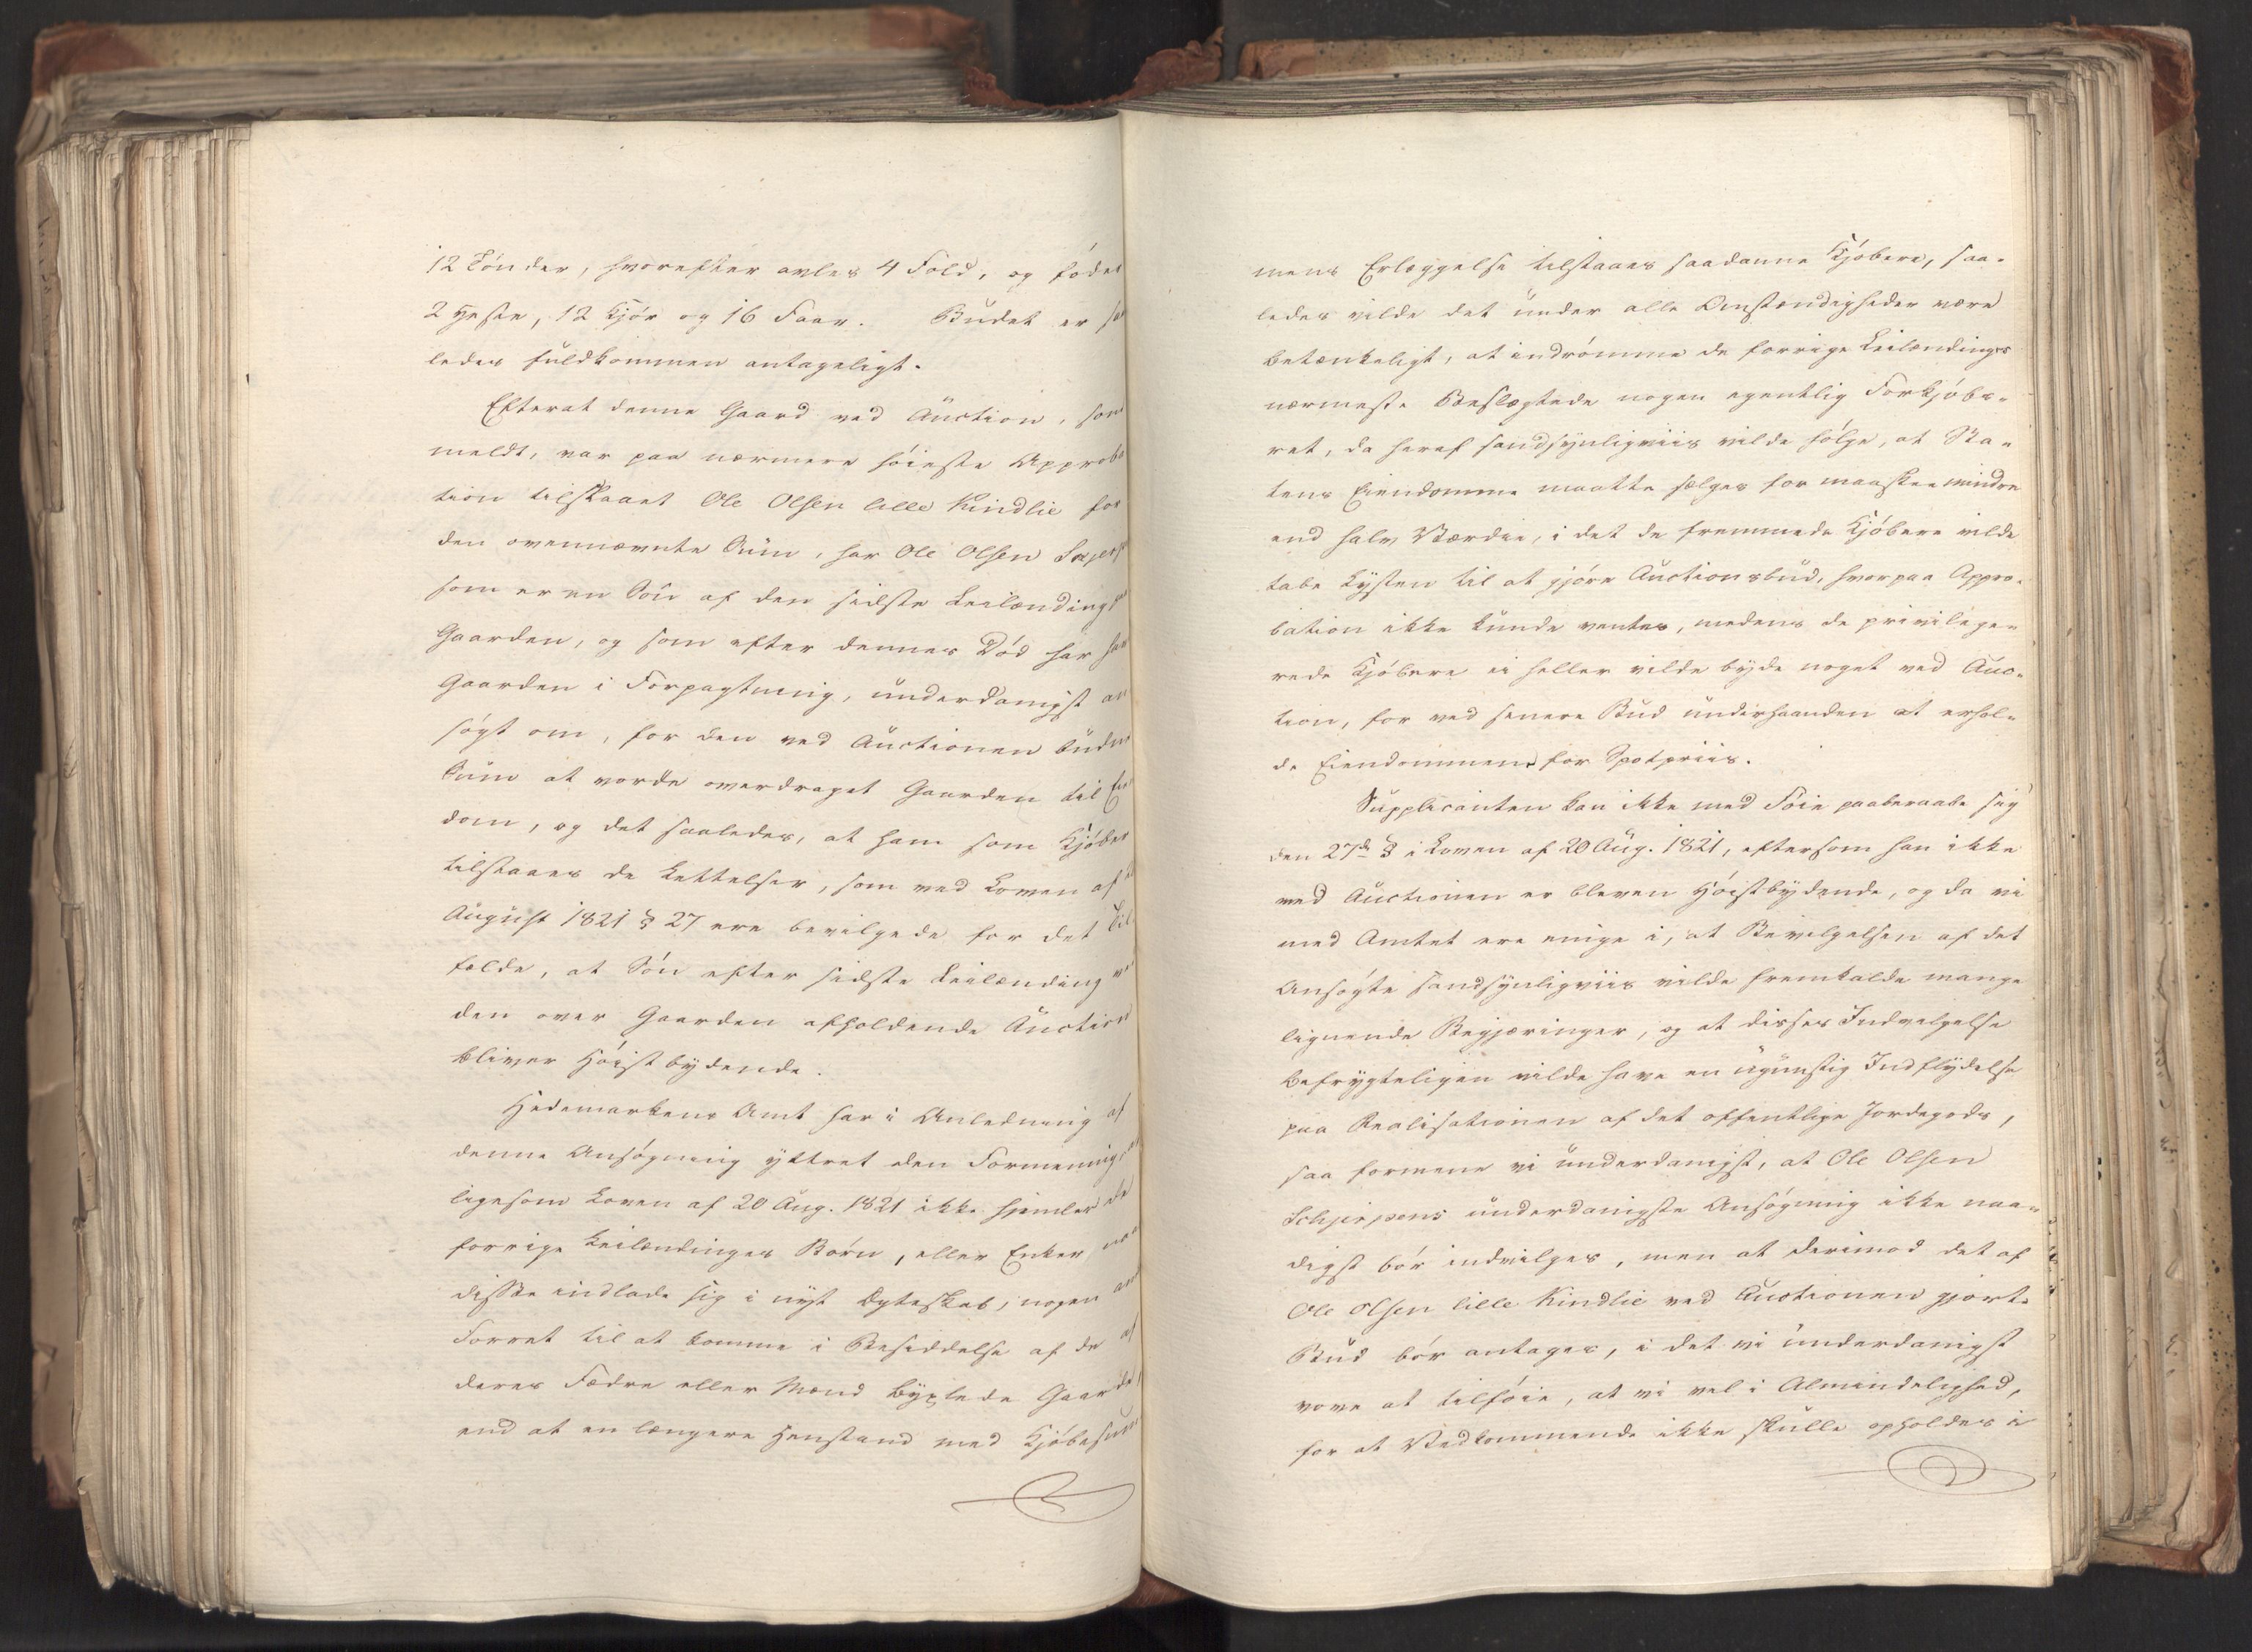 12 Tönder, hvorefter avles 4 Fold, og födes
2 Heste, 12 Kjör og 16 Faar. Budet er saa
ledes fuldkommen antageligt.
Efterat denne Gaard ved Auction, som
meldt, var paa nærmere höieste Approba
tion tilslaaet Ole Olsen lille Kindlie for
den ovennævnte Sum, har Ole Olsen
som er en Sön af den sidste Leilænding paa
Gaarden, og som efter dennes Död har havt
Gaarden i Forpagtning, underdanigst an
sögt om, for den ved Auctionen budne
Sum at vorde overdraget Gaarden til Eien
dom, og det saaledes, at ham som Kjöber
tilstaaes de Lettelser, som ved Loven af 20
August 1821 § 27 ere bevilgede for det Til
fælde, at Sön efter sidste Leilænding ved
den over Gaarden afholdende Auction
bliver Höistbydende.
Hedemarkens Amt har i Anledning af
denne Ansögning yttret den Formening, at
ligesom Loven af 20 Aug. 1821 ikke hjemler de
forrige Leilændinges Börn, eller Enker, naar
disse indlade sig i nyt Ægteskab, nogen anden
Forret til at komme i Besiddelse af de af
deres Fædre eller Mænd byxlede Gaarde,
end at en længere Henstand med Kjöbesum
mens Erlæggelse tilstaaes saadanne Kjöbere, saa-
ledes vilde det under alle Omstændigheder være
betænkeligt, at indrömme de forrige Leilændinges
nærmeste Beslægtede nogen egentlig Forkjöbs-
ret, da heraf sandsynligviis vilde fölge, at Sta-
tens Eiendomme maatte sælges for maaskee mindre
end halv Værdie, i det de fremmede Kjöbere vilde
tabe Lysten til at gjöre Auctionsbud, hvorpaa Appro-
bation ikke kunde ventes, medens de privilege-
rede Kjöbere ei heller vilde byde noget ved Auc-
tion, for ved senere Bud underhaanden at erhol-
de Eiendommene for Spotpriis.
Supplicanten kan ikke med Föie paaberaabe sig
den 27de § i Loven af 20 Aug. 1821, eftersom han ikke
ved Auctionen er bleven Höistbydende, og da vi
med Amtet ere enige i, at Bevilgelsen af det
Ansögte sandsynligviis vilde fremkalde mange
lignende Begjæringer, og at disses Indvilgelse
befrygteligen vilde have en ugunstig Indflydelse
paa Realisationen af det offentlige Jordegods,
saa formene vi underdanigst, at Ole Olsen
Schjerpens underdanigste Ansögning ikke naa-
digst bör indvilges, men at derimod det af
Ole Olsen lille Kindlie ved Auctionen gjorte
Bud bör antages, i det vi underdanigst
vove at tilföie, at vi vel i Almindelighed,
for at Vedkommende ikke skulle opholdes i